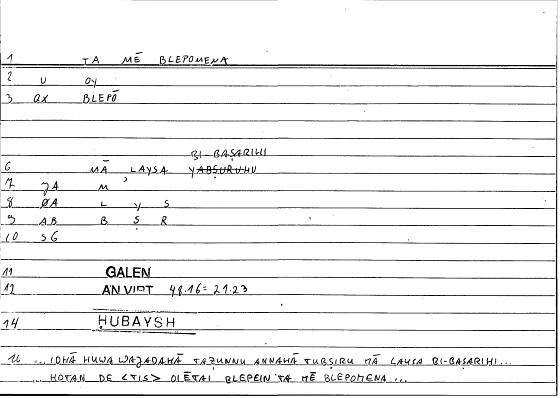 1 TA MĒ BLEPOMENA
2 U OY
3 QX BLEPŌ
BI-BAṢARIHI
6 MĀ LAYSA YABṢURUHU
7 JA M ʾ
8 ØA L Y S
9 AB B Ṣ R
10 SG
11 GALEN
12 AN VIRT 48.16 = 21.23
14 ḤUBAYSH
16 ...IDHĀ HUWA WAJADAHĀ TAẒUNNU ANNAHĀ TUBṢIRU MĀ LAYSA BI-BAṢARIHI...
...HOTAN DE <TIS> OIĒTAI BLEPEIN TA MĒ BLEPOMENA ...